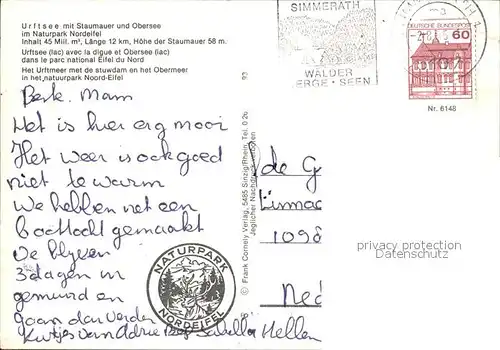 Urftsee mit Staumauer und Obersee
im Naturpark Nordeifel
Inhalt 45 Mill. m³, Länge 12 km, Höhe der Staumauer 58 m.
Urftsee (lac) avec la digue et Obersee (lac)
dans le parc national Eifel du Nord
Het Urftmeer met de stuwdam en het Obermeer
in het natuurpark Noord-Eifel
93
Beste Mam
Het is hier erg mooi
Het weer is ook goed
niet te warm
We hebben net een
boottocht gemaakt
We blijven
3 dagen in
gemund en
gaan dan verder
Kusjes van Adrie Isabella Hellen
NATURPARK
NORDEIFEL
© Frank Comely Verlag, 5485 Sinzig/Rhein, Tel. 0 26
Jeglicher Nachdruck verboten
SIMMERATH
WÄLDER
BERGE · SEEN
DEUTSCHE BUNDESPOST
60
Nr. 6148
de G
1098
Ned
privacy protection
Datenschutz